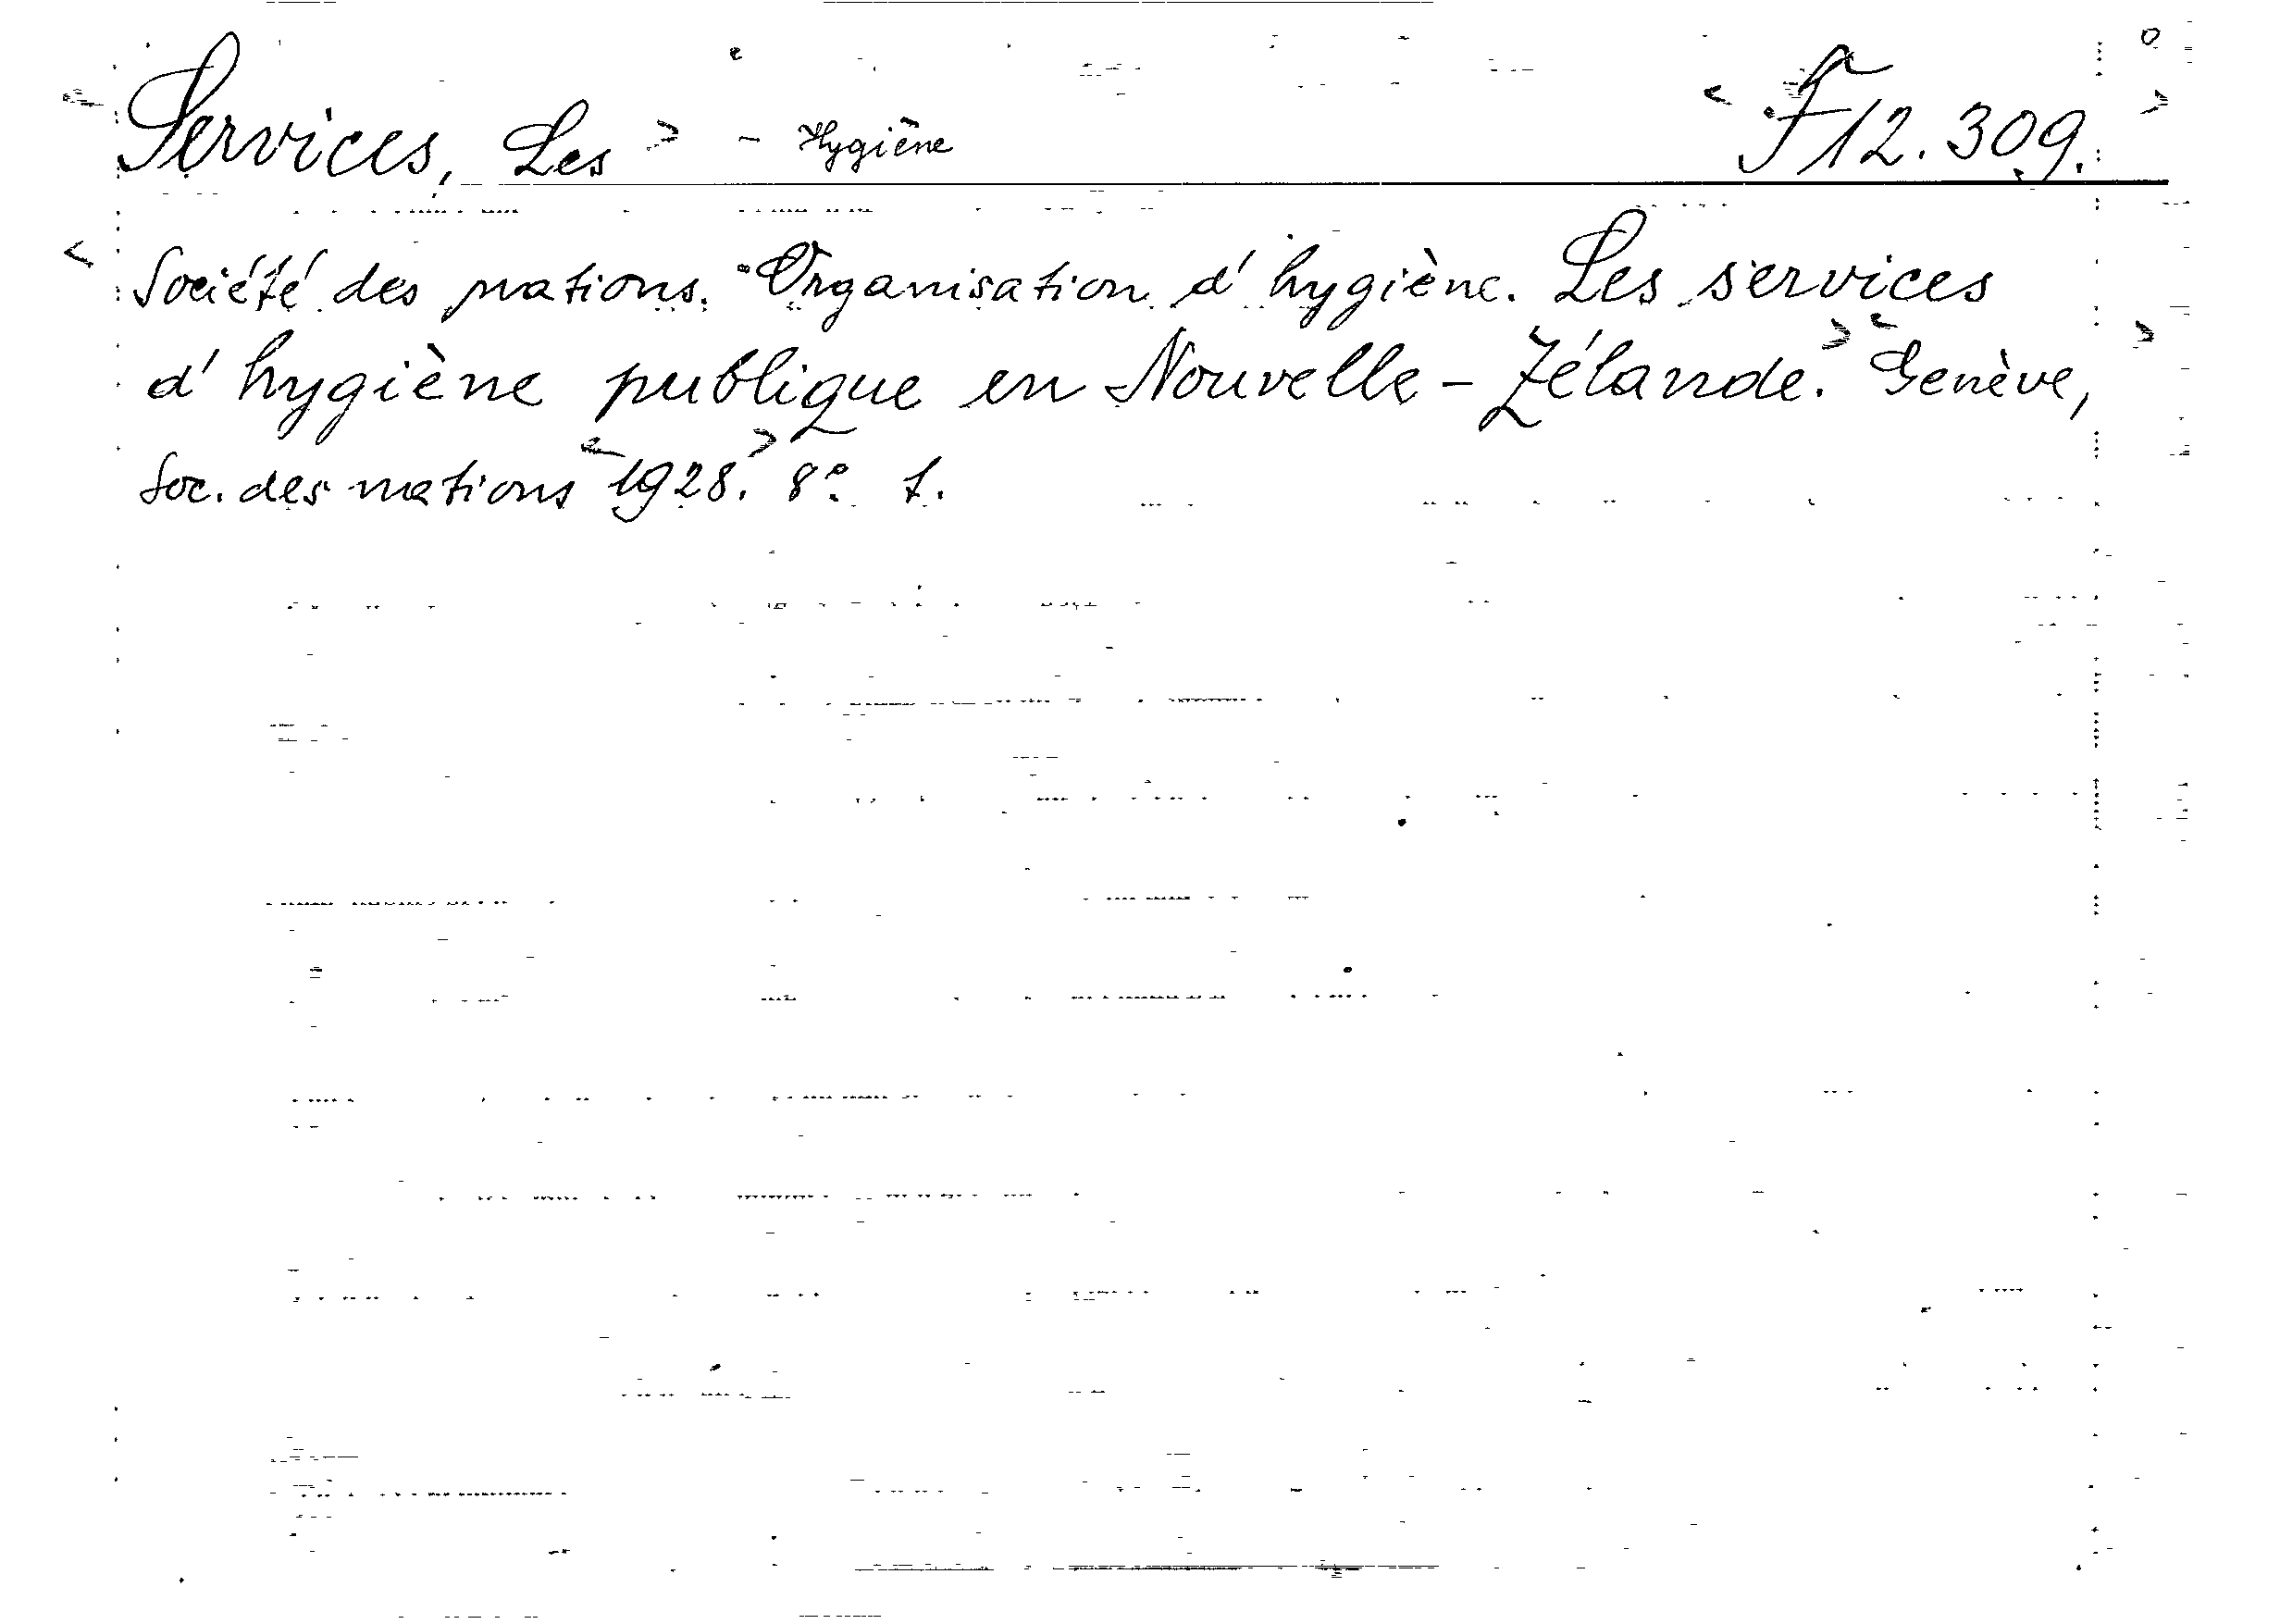 Services, Les - Hygiène F 12.309.
Société des nations. Organisation d'hygiène. Les services
d'hygiène publique en Nouvelle-Zélande. Genève,
Soc. des nations 1928. 8° 1.